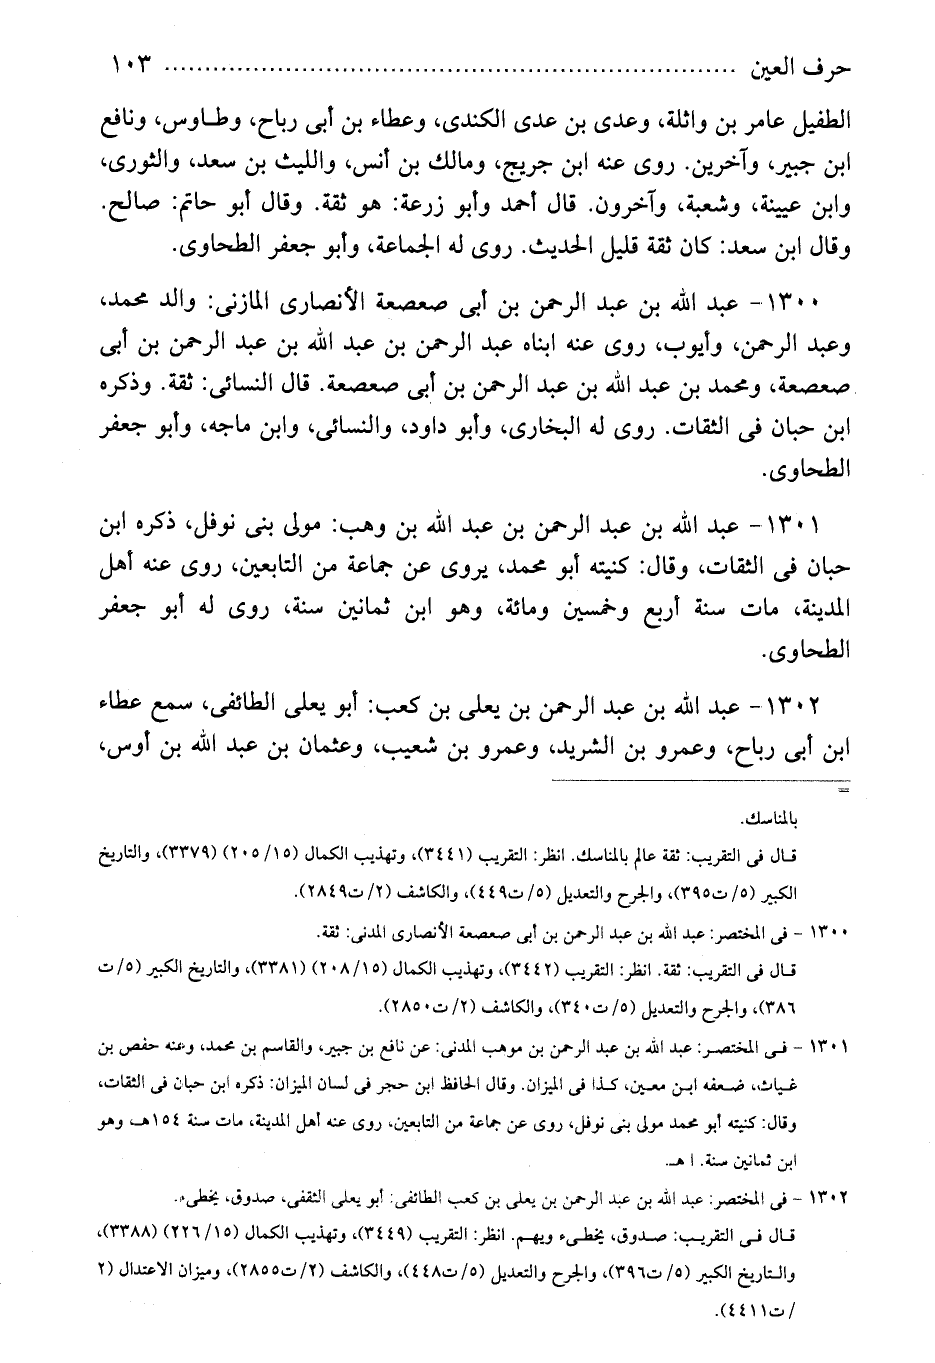 حرف العين ........................................................................ ١٠٣
الطفيل عامر بن واثلة، وعدى بن عدى الكندى، وعطاء بن أبى رباح، وطاوس، ونافع
ابن جبير، وآخرين. روى عنه ابن جريج، ومالك بن أنس، والليث بن سعد، والثورى،
وابن عيينة، وشعبة، وآخرون. قال أحمد وأبو زرعة: هو ثقة. وقال أبو حاتم: صالح.
وقال ابن سعد: كان ثقة قليل الحديث. روى له الجماعة، وأبو جعفر الطحاوى.
١٣٠٠- عبد الله بن عبد الرحمن بن أبى صعصعة الأنصارى المازنى: والد محمد،
وعبد الرحمن، وأيوب، روى عنه ابناه عبد الرحمن بن عبد الله بن عبد الرحمن بن أبى
صعصعة، ومحمد بن عبد الله بن عبد الرحمن بن أبى صعصعة. قال النسائى: ثقة. وذكره
ابن حبان فى الثقات. روى له البخارى، وأبو داود، والنسائى، وابن ماجه، وأبو جعفر
الطحاوى.
١٣٠١- عبد الله بن عبد الرحمن بن عبد الله بن وهب: مولى بنى نوفل، ذكره ابن
حبان فى الثقات، وقال: كنيته أبو محمد، يروى عن جماعة من التابعين، روى عنه أهل
المدينة، مات سنة أربع وخمسين ومائة، وهو ابن ثمانين سنة، روى له أبو جعفر
الطحاوى.
١٣٠٢- عبد الله بن عبد الرحمن بن يعلى بن كعب: أبو يعلى الطائفى، سمع عطاء
ابن أبى رباح، وعمرو بن الشريد، وعمرو بن شعيب، وعثمان بن عبد الله بن أوس،
=
بالمناسك.
قال فى التقريب: ثقة عالم بالمناسك. انظر: التقريب (٣٤٤١)، وتهذيب الكمال (٢٠٥/١٥) (٣٣٧٩)، والتاريخ
الكبير (٥/ت٣٩٥)، والجرح والتعديل (٥/ت٤٤٩)، والكاشف (٢/ت٢٨٤٩).
١٣٠٠ - فى المختصر: عبد الله بن عبد الرحمن بن أبى صعصعة الأنصارى المدنى: ثقة.
قال فى التقريب: ثقة. انظر: التقريب (٣٤٤٢)، وتهذيب الكمال (٢٠٨/١٥) (٣٣٨١)، والتاريخ الكبير (٥/ت
٣٨٦)، والجرح والتعديل (٥/ت٣٤٠)، والكاشف (٢/ت٢٨٥٠).
١٣٠١ - فى المختصر: عبد الله بن عبد الرحمن بن موهب المدنى: عن نافع بن جبير، والقاسم بن محمد، وعنه حفص بن
غياث، ضعفه ابن معين، كذا فى الميزان. وقال الحافظ ابن حجر فى لسان الميزان: ذكره ابن حبان فى الثقات،
وقال: كنيته أبو محمد مولى بنى نوفل، روى عن جماعة من التابعين، روى عنه أهل المدينة، مات سنة ١٥٤هـ، وهو
ابن ثمانين سنة. ا هـ.
١٣٠٢ - فى المختصر: عبد الله بن عبد الرحمن بن يعلى بن كعب الطائفى: أبو يعلى الثقفى، صدوق، يخطىء.
قال فى التقريب: صدوق، يخطىء ويهم. انظر: التقريب (٣٤٤٩)، وتهذيب الكمال (٢٢٦/١٥) (٣٣٨٨)،
والتاريخ الكبير (٥/ت٣٩٦)، والجرح والتعديل (٥/ت٤٤٨)، والكاشف (٢/ت٢٨٥٥)، وميزان الاعتدال (٢
/ت٤٤١١).